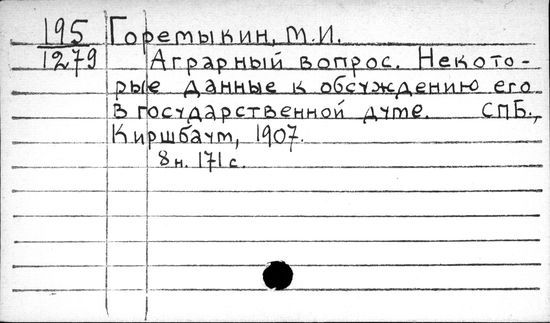 195 Горемыкин, М.И.
1279 Аграрный вопрос. Некото-
рые данные к обсуждению его
в государственной думе. СПБ.,
Киршбаум, 1907.
8н. 171 с.